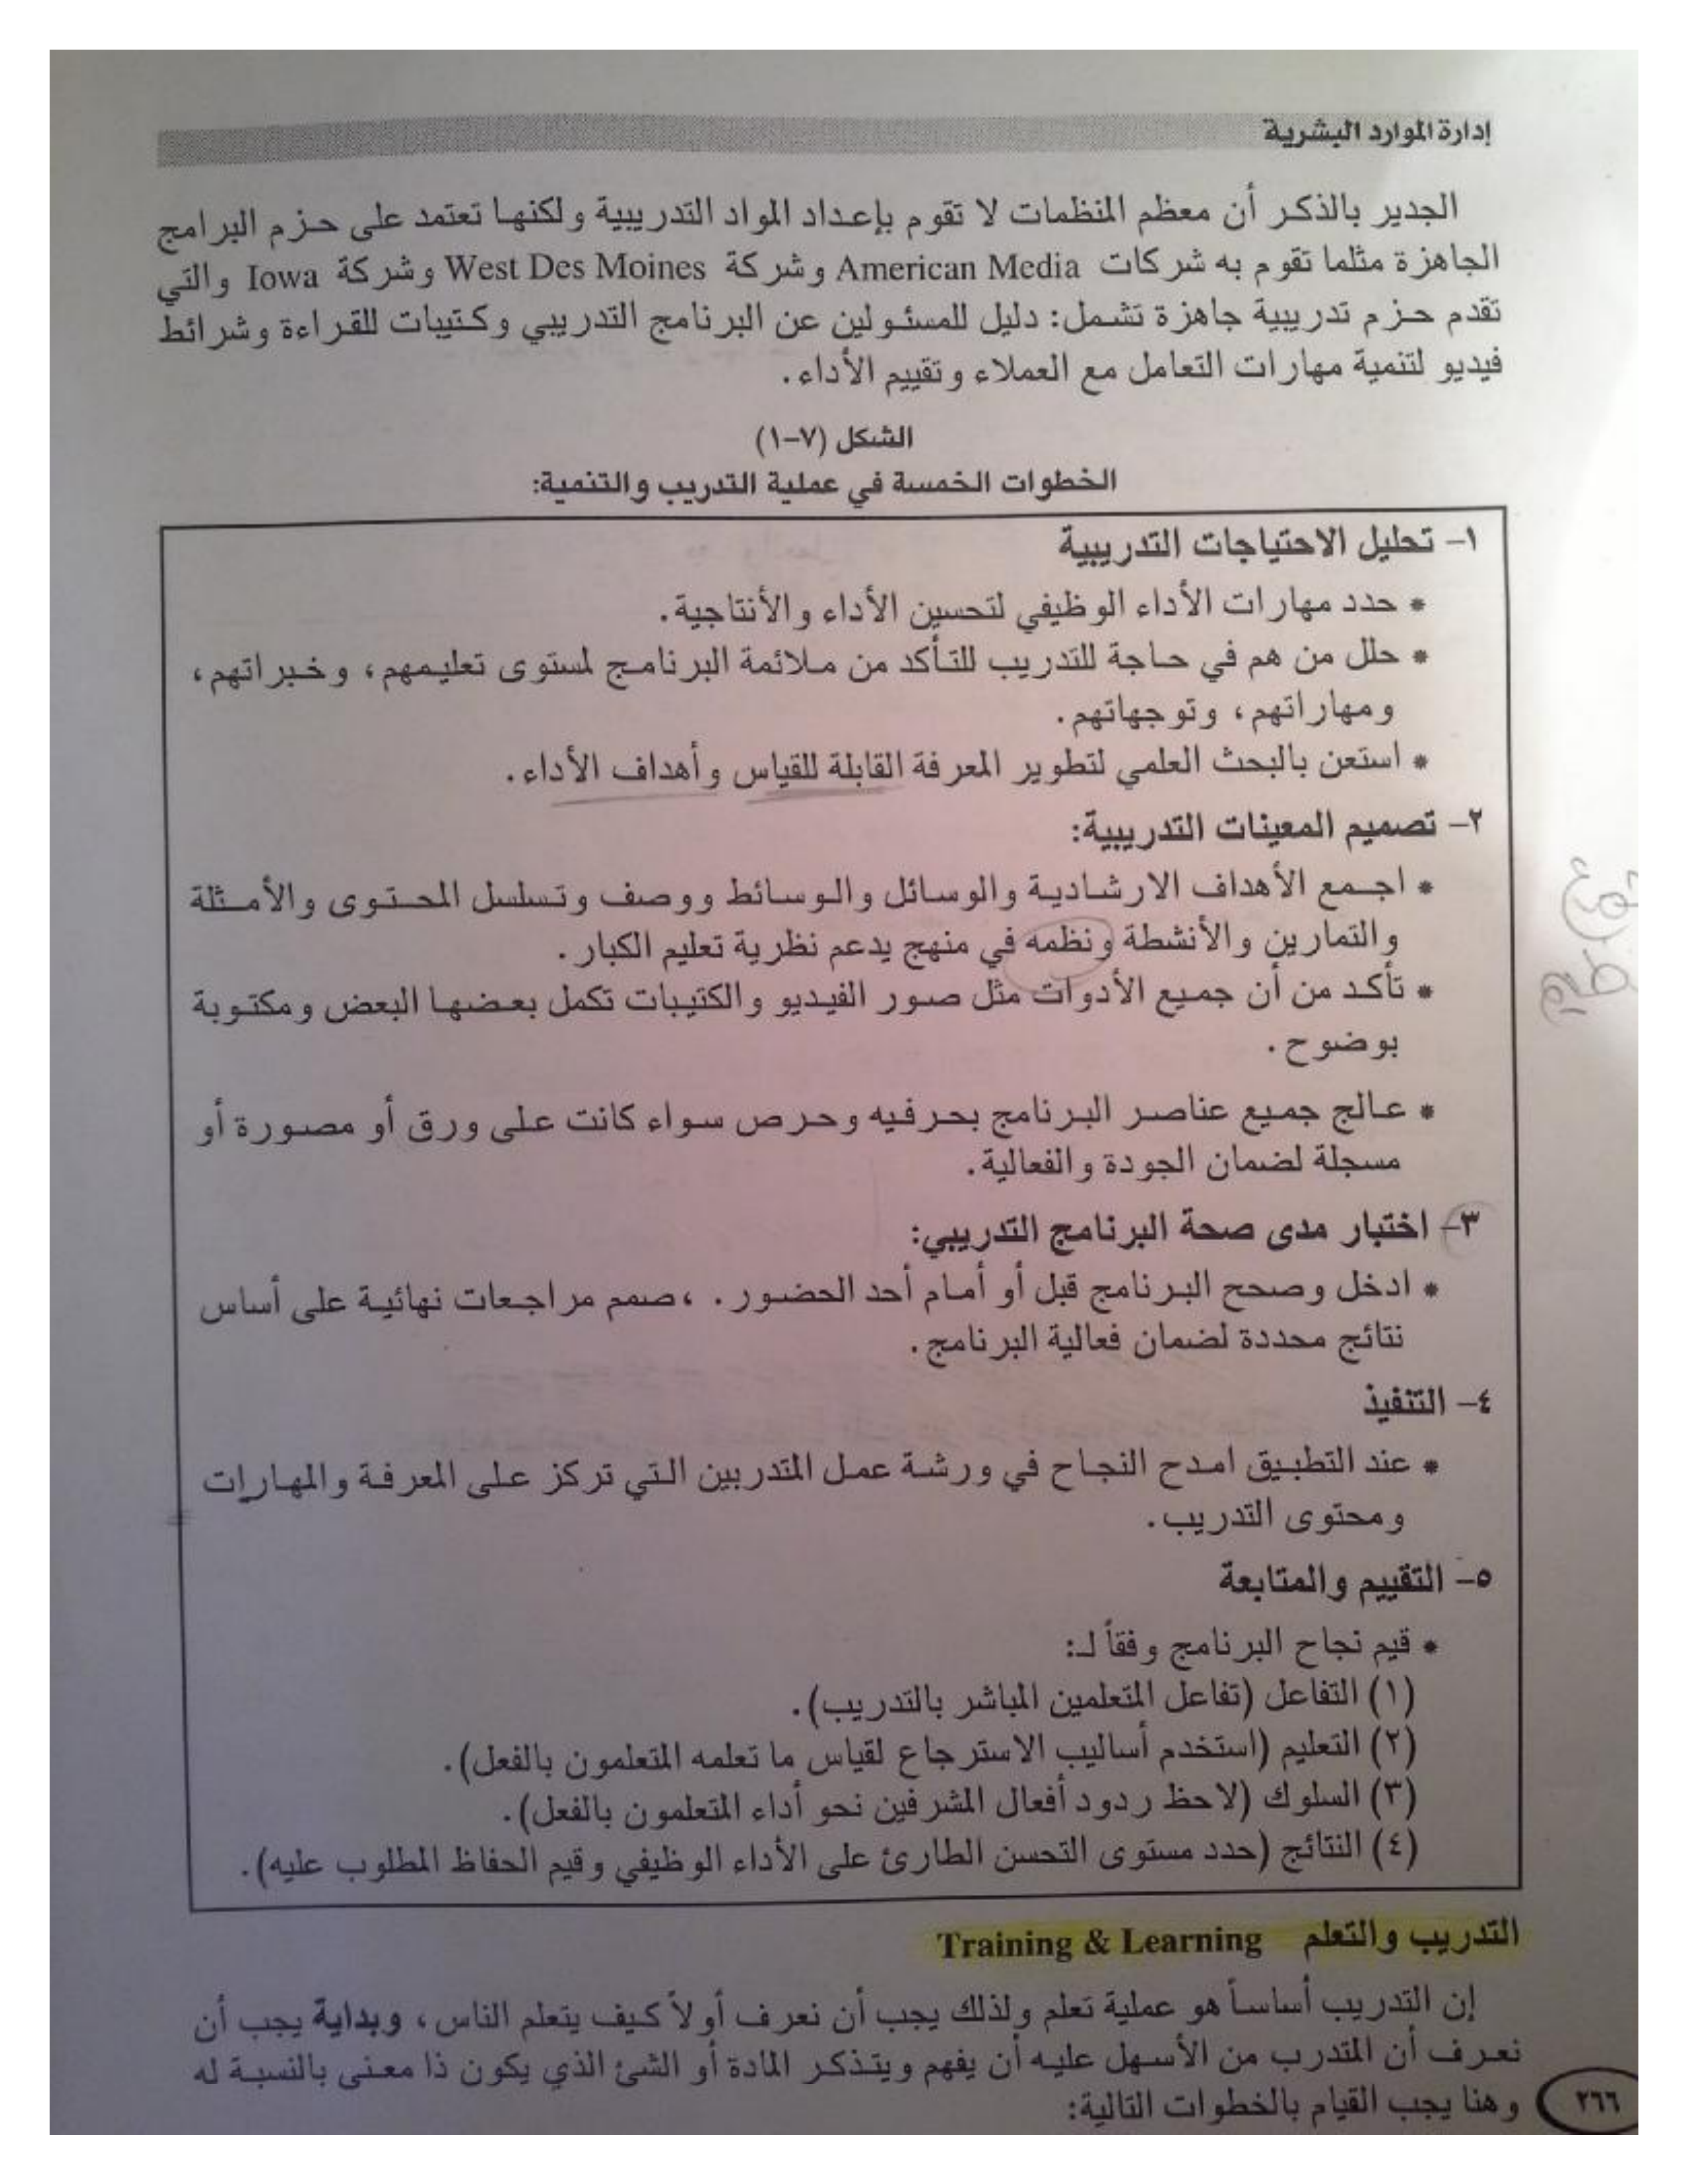 إدارة الموارد البشرية
الجدير بالذكر أن معظم المنظمات لا تقوم بإعداد المواد التدريبية ولكنها تعتمد على حزم البرامج
الجاهزة مثلما تقوم به شركات American Media وشركة West Des Moines وشركة Iowa والتي
تقدم حزم تدريبية جاهزة تشمل: دليل للمسئولين عن البرنامج التدريبي وكتيبات للقراءة وشرائط
فيديو لتنمية مهارات التعامل مع العملاء وتقييم الأداء.
الشكل (٧-١)
الخطوات الخمسة في عملية التدريب والتنمية:
١- تحليل الاحتياجات التدريبية
* حدد مهارات الأداء الوظيفي لتحسين الأداء والأنتاجية.
* حلل من هم في حاجة للتدريب للتأكد من ملائمة البرنامج لمستوى تعليمهم، وخبراتهم،
ومهاراتهم، وتوجهاتهم.
* استعن بالبحث العلمي لتطوير المعرفة القابلة للقياس وأهداف الأداء.
٢- تصميم المعينات التدريبية:
* اجمع الأهداف الارشادية والوسائل والوسائط ووصف وتسلسل المحتوى والأمثلة
والتمارين والأنشطة ونظمه في منهج يدعم نظرية تعليم الكبار.
* تأكد من أن جميع الأدوات مثل صور الفيديو والكتيبات تكمل بعضها البعض ومكتوبة
بوضوح.
* عالج جميع عناصر البرنامج بحرفيه وحرص سواء كانت على ورق أو مصورة أو
مسجلة لضمان الجودة والفعالية.
٣- اختبار مدى صحة البرنامج التدريبي:
* ادخل وصحح البرنامج قبل أو أمام أحد الحضور. ،صمم مراجعات نهائية على أساس
نتائج محددة لضمان فعالية البرنامج.
٤- التنفيذ
* عند التطبيق امدح النجاح في ورشة عمل المتدربين التي تركز على المعرفة والمهارات
ومحتوى التدريب.
٥- التقييم والمتابعة
* قيم نجاح البرنامج وفقاً لـ:
(١) التفاعل (تفاعل المتعلمين المباشر بالتدريب).
(٢) التعليم (استخدم أساليب الاسترجاع لقياس ما تعلمه المتعلمون بالفعل).
(٣) السلوك (لاحظ ردود أفعال المشرفين نحو أداء المتعلمون بالفعل).
(٤) النتائج (حدد مستوى التحسن الطارئ على الأداء الوظيفي وقيم الحفاظ المطلوب عليه).
التدريب والتعلم Training & Learning
إن التدريب أساساً هو عملية تعلم ولذلك يجب أن نعرف أولاً كيف يتعلم الناس، وبداية يجب أن
نعرف أن المتدرب من الأسهل عليه أن يفهم ويتذكر المادة أو الشئ الذي يكون ذا معنى بالنسبة له
وهنا يجب القيام بالخطوات التالية:
٢٦٦